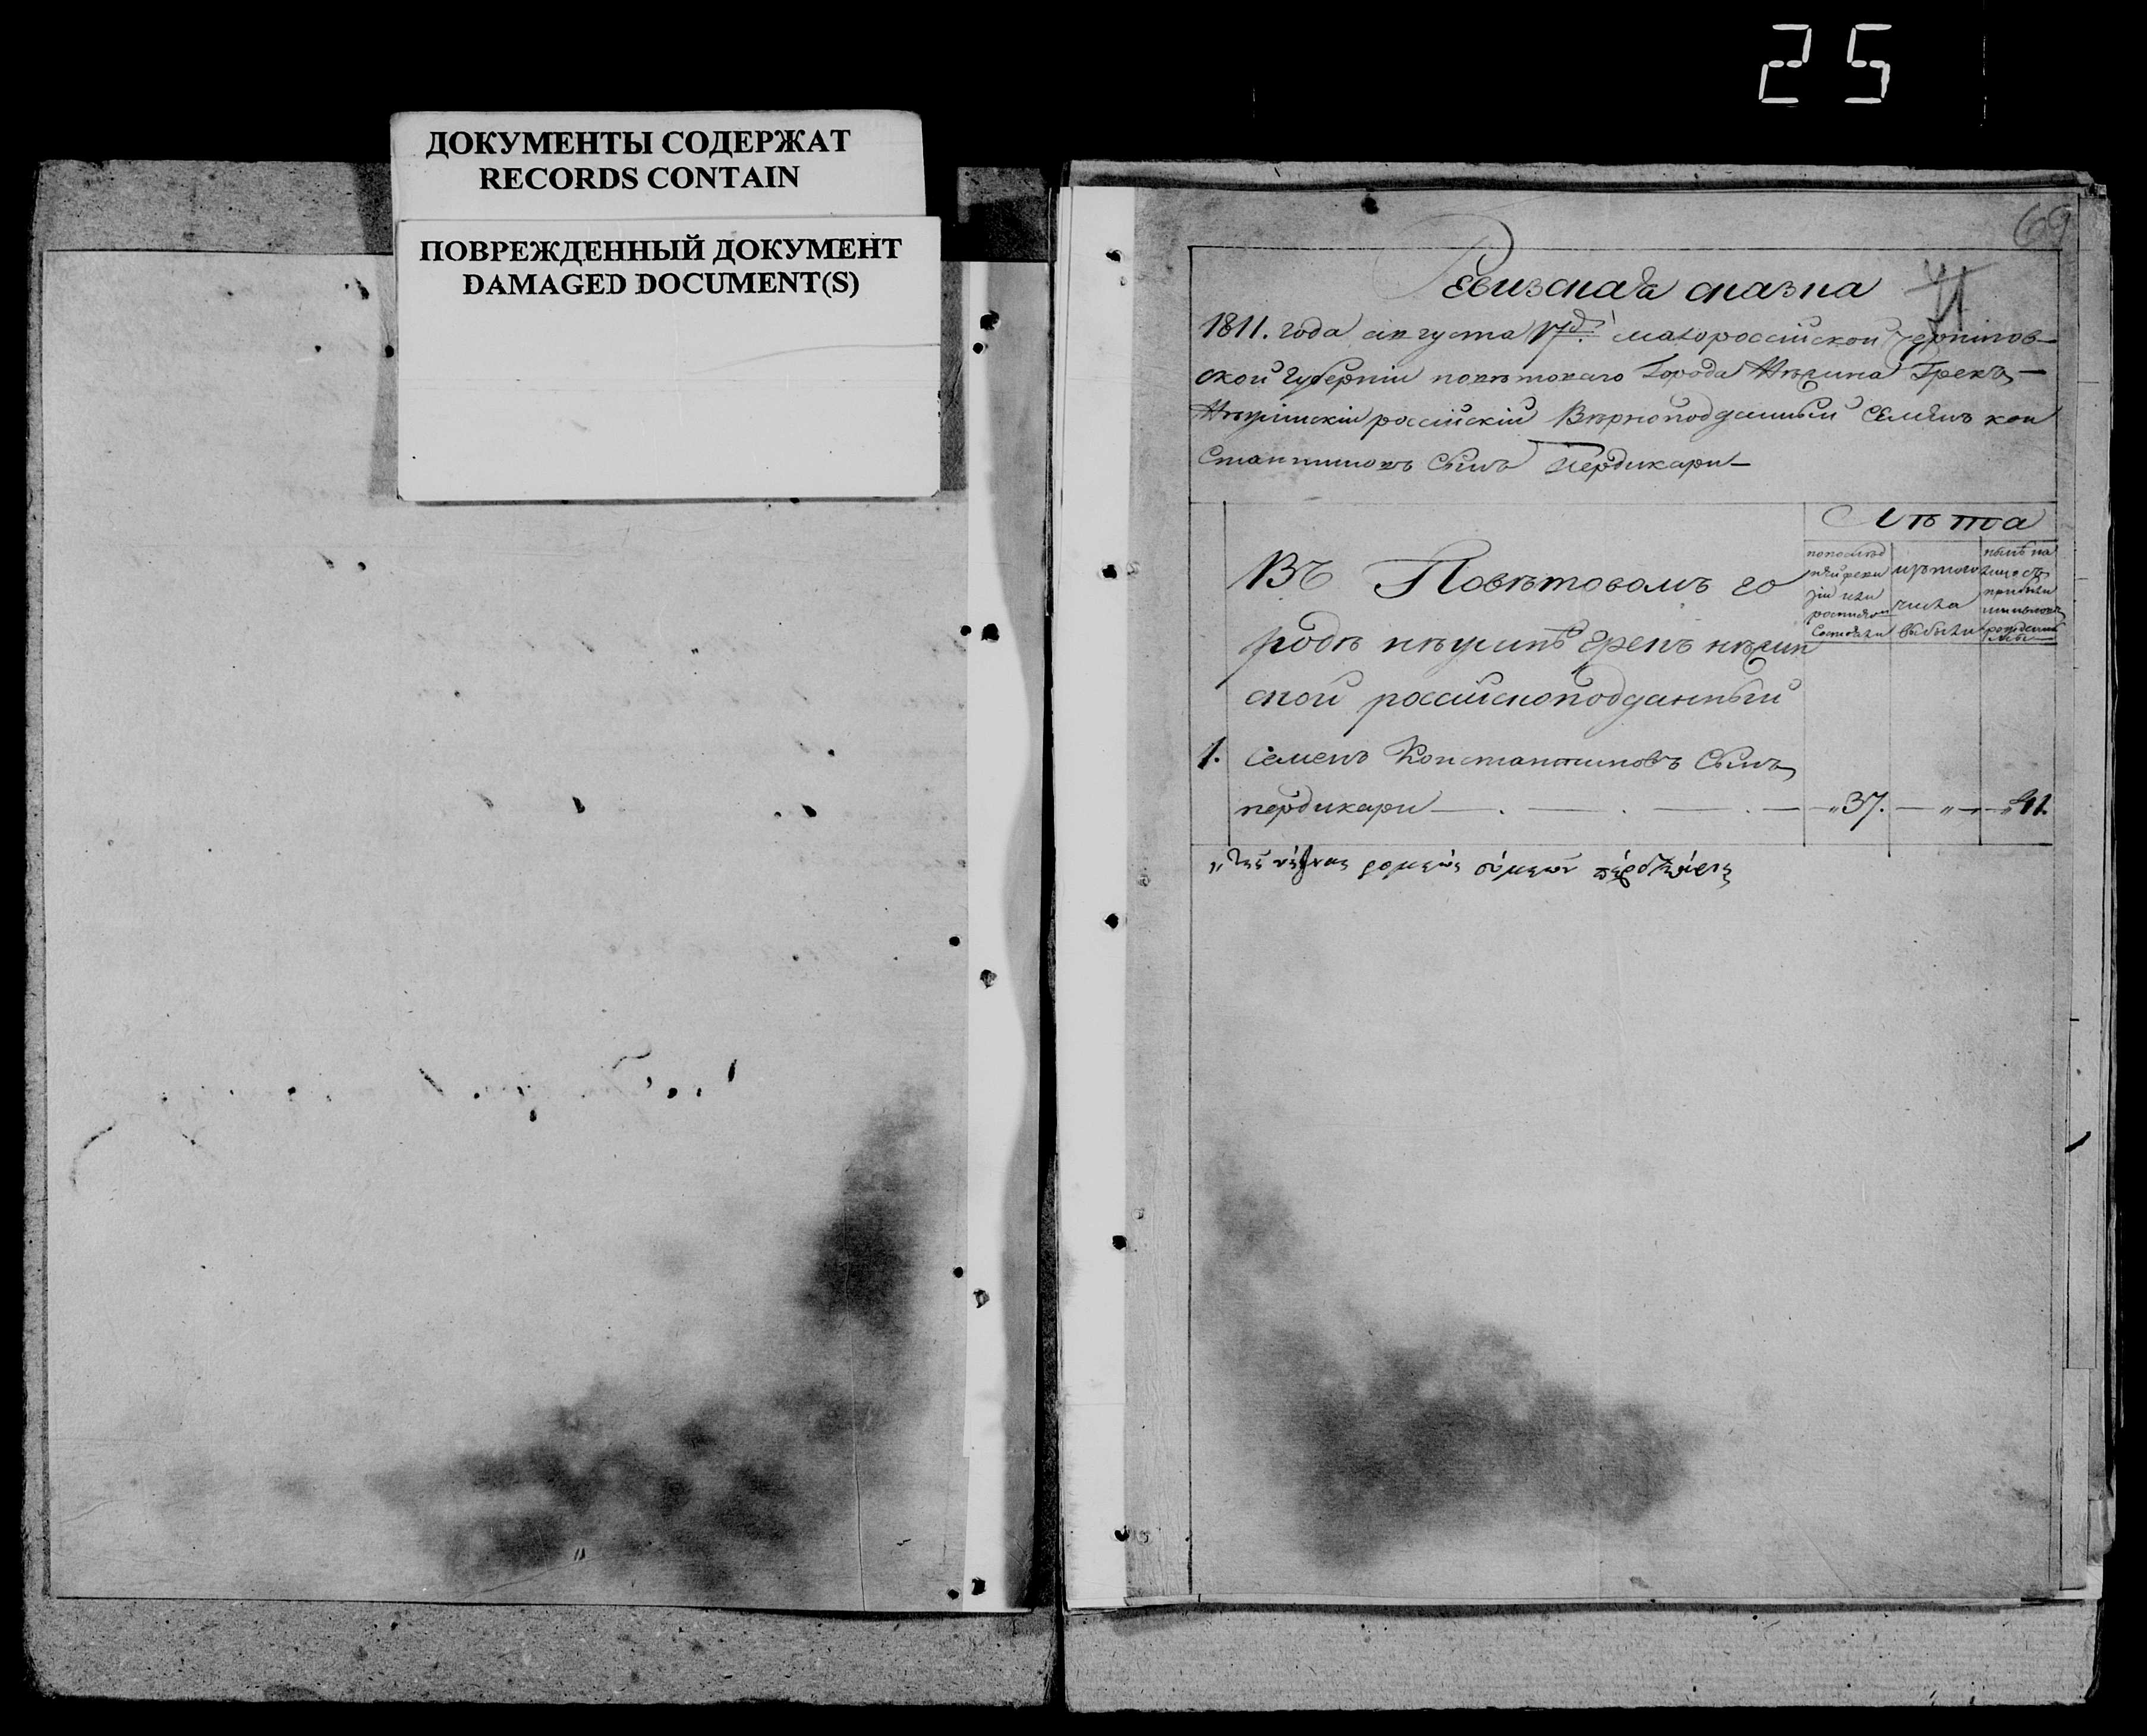 25
ДОКУМЕНТЫ СОДЕРЖАТ
RECORDS CONTAIN
ПОВРЕЖДЕННЫЙ ДОКУМЕНТ
DAMAGED DOCUMENT(S)
69
Ревизская сказка
41
1811. года августа 17д: малороссійской чернигов-
ской губерніи поветоваго города Нѣжина Грекъ
Нѣжинскій россійскій Вѣрноподданный Семенъ кон
стантиновъ сынъ Пердикари
Лѣта
попослед
ней реви
зіи или
состояли
изътого
числа
выбыли
нынѣ на
лицо съ
Въ Повѣтовомъ го
родѣ нѣжинѣ грекъ нѣжин
ской россійскоподданный
1. Семенъ Константиновъ Сынъ
пердикари 37. 41.